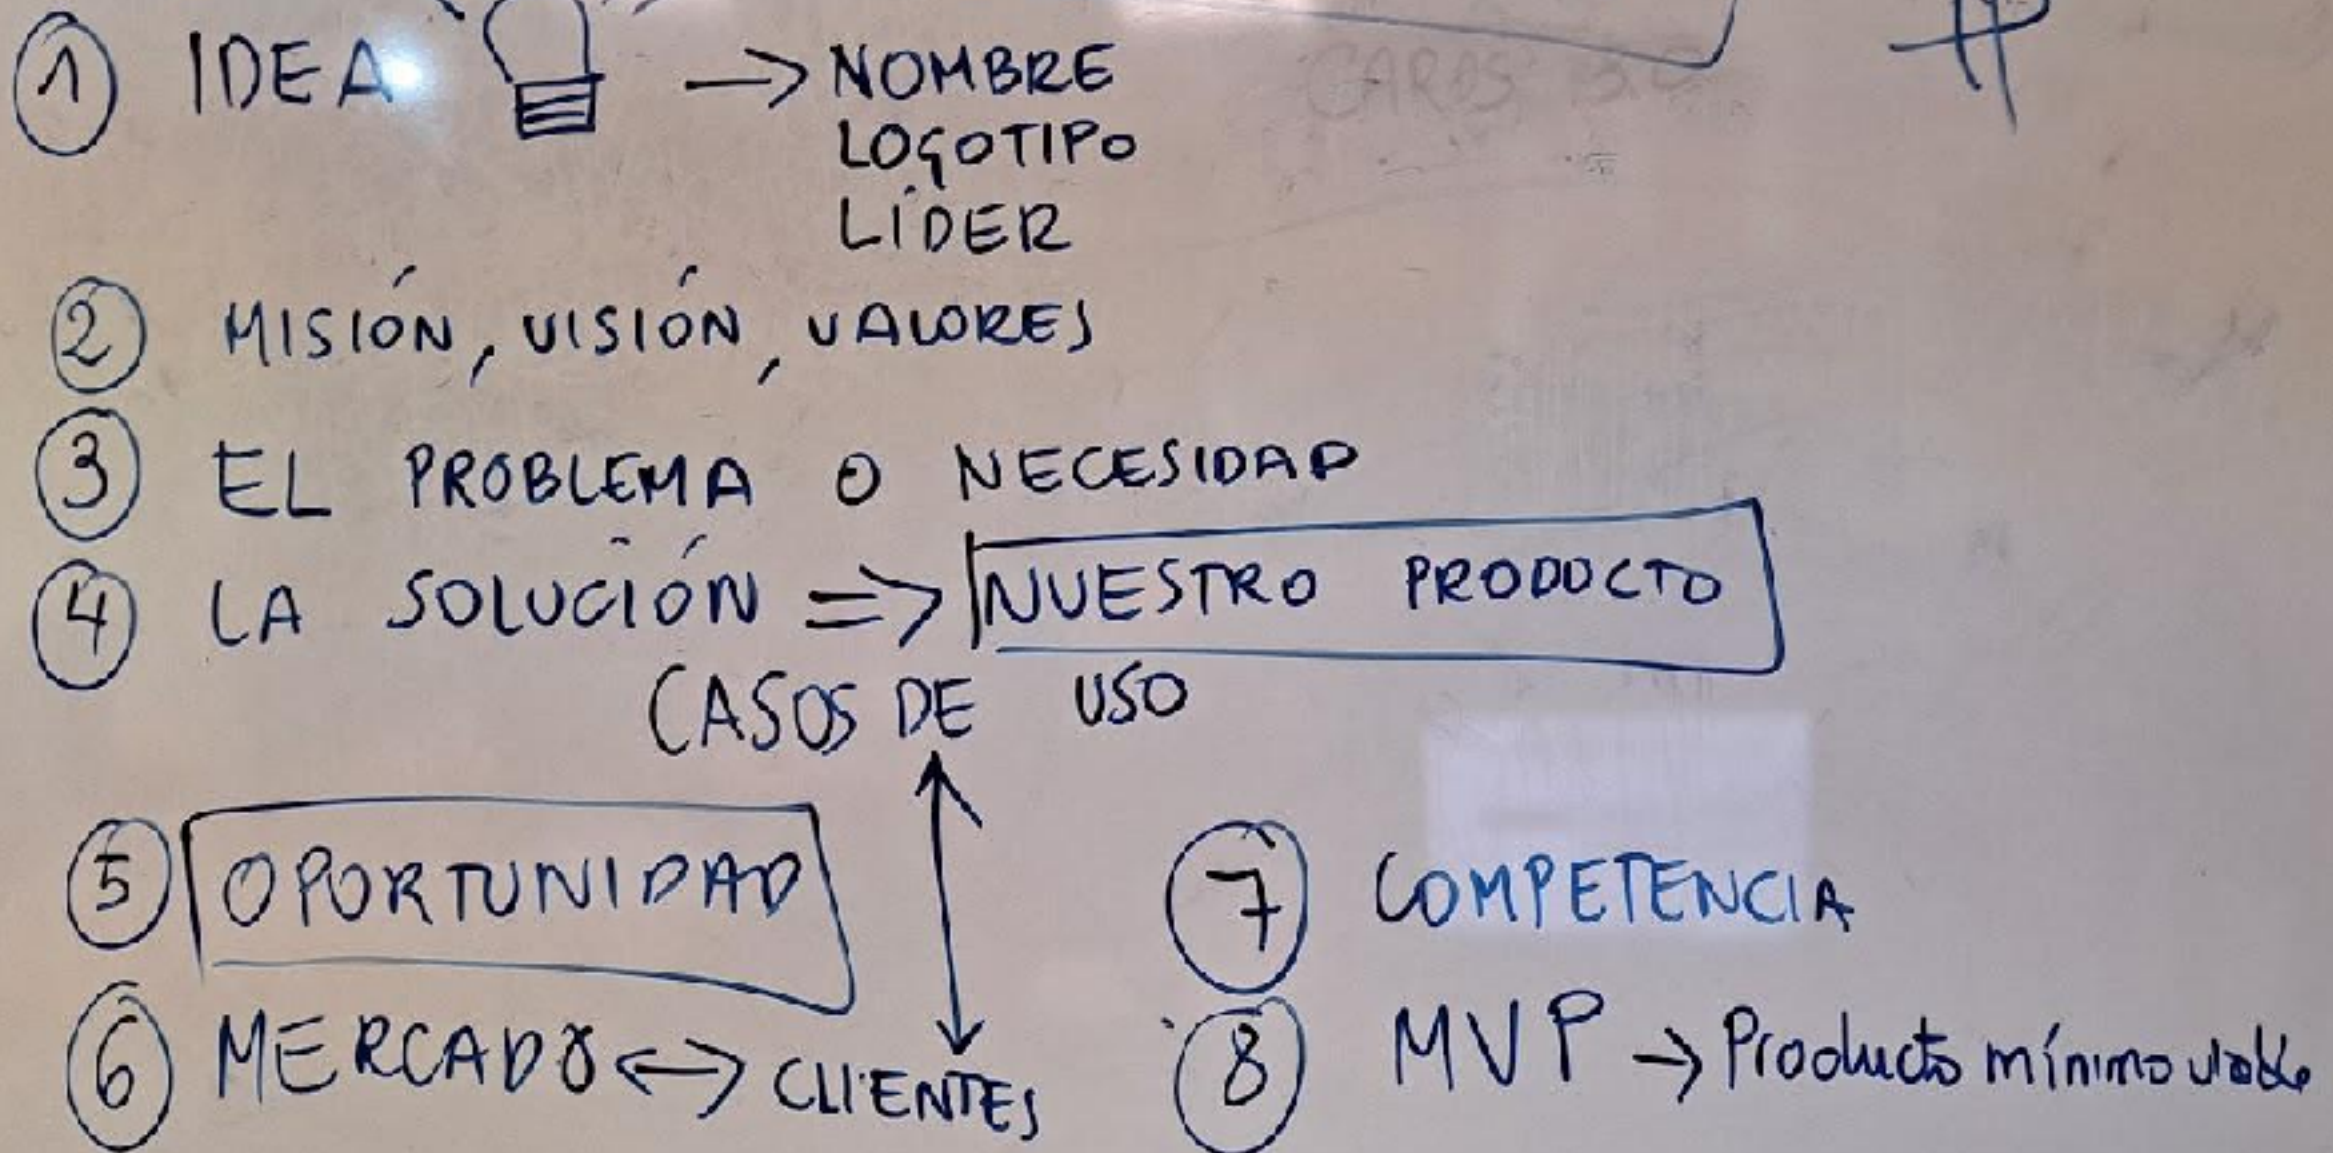 ① IDEA → NOMBRE
LOGOTIPO
LÍDER
② MISIÓN, VISIÓN, VALORES
③ EL PROBLEMA O NECESIDAD
④ LA SOLUCIÓN => NUESTRO PRODUCTO
CASOS DE USO
⑤ OPORTUNIDAD
⑥ MERCADO <-> CLIENTES
⑦ COMPETENCIA
⑧ MVP → Producto mínimo viable